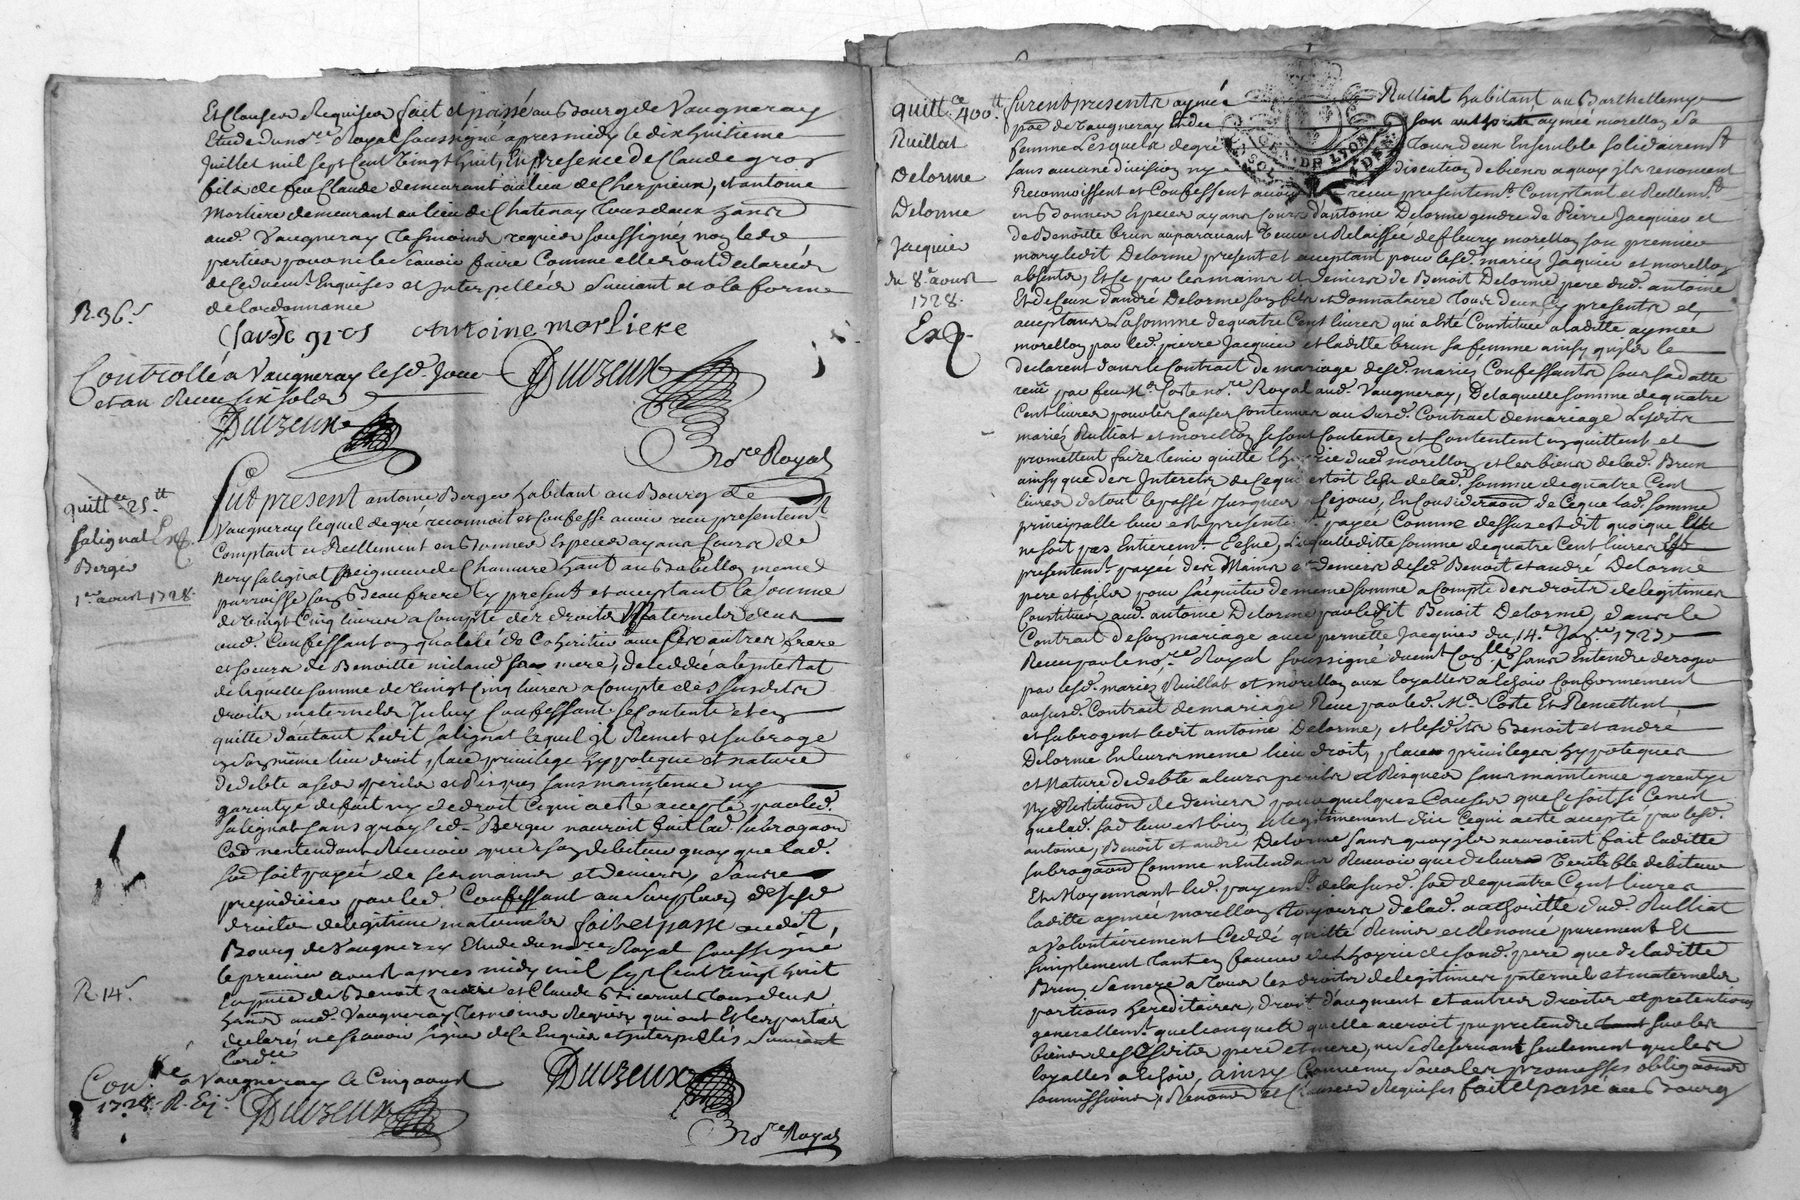 Et Clauses Requises fait et passé au Bourg de Vaugneray
Etude du no.re Royal soussigné apres midy le dix huitieme
Juillet mil sept Cent vingt huit, En presence de Claude gros
fils de feu Claude demeurant au lieu de Cherpieux, et antoine
Morliere demeurant au lieu de Chatenay tous deux
aud. Vaugneray tesmoins requis soussignez non lesd.
parties pour ne le scavoir faire Comme elles ont declarées
de ce duem.t Enquises et Interpellées suivant et a la forme
de lordonnance
R. 36.s
Clavde gros Antoine morliere
Controllé a Vaugneray lesd. Jour
et an Receu six sols
Duvzeux
Duvzeux
No.re Royal
quitt.ce 25.tt
salignat
Berger
1.er aoust 1728.
Exp.
Fut present antoine Berger habitant au Bourg de
Vaugneray lequel de gré reconnoit et Confesse avoir receu presentem.t
Comptant et Reellement en Bonnes Especes ayans Cours de
Nery salignat habitant au Babillon meme
parroisse son Beaufrere Cy present et acceptant la somme
de vingt Cinq livres a compte des droits Maternels deus
aud. Confessant en qualité de Coheritier avec ses autres frere
et soeurs de Benoitte nicaud sa mere, decedée abintestat
de laquelle somme de vingt Cinq livres a compte des susdits
droits maternels Confessant se Contente et en
quitte d'autant Ledit salignat lequel il Remet et subroge
en son même lieu droit, place privilege hypoteque et nature
de debte a ses perils et Risques sans maintenue ny
garentye de fait ny de droit Ce qui a esté accepté par led.
salignat sans quoy led. Berger nauroit fait lad. subrogaon
Cod nentendant Recevoir que son debiteur quoy que lad.
soe soit payée de ses mains et deniers, sans
prejudicier par led. Confessant au surplus de sesd.
droits de legitime maternels fait et passé audit
Bourg de Vaugneray Etude du no.re Royal soussigné
le premier aoust apres midy mil sept Cent vingt huit
En pnce de Benoit et Claude tous deux
aud. Vaugneray Tesmoins Requis qui ont Et les parties
declaré ne scavoir signer de Ce Enquis et Interpellés suivant
Lord.ce
R 14.s
Con.lé a Vaugneray le Cinq aoust
1728. R.
Duvzeux
Duvzeux
No.re Royal
quitt.ce 400.tt
Rulliat
Delorme
Delorme
Jacquier
du 8.e aoust
1728.
Exp.
GEN. DE LYON
Furent presents aymée Rulliat habitant au Barthellemy
pae de Vaugneray Et de son authorité aymée morellon sa
femme Lesquels de gré Tour deux Ensemble solidairem.t
sans aucune division ny discution de biens a quoy ils renoncent
Reconnoissent et Confessent avoir receu presentem.t Comptant et Reellem.t
en Bonnes Especes ayans Cours d'antoine Delorme gendre de Pierre Jacquier et
de Benoitte brun auparavant veuve et Relaissée de fleury morellon son premier
mary ledit Delorme present et acceptant pour lesd. mariez Jaquier et morellon
absents, Et ce par les mains et deniers de Benoit Delorme pere dud. antoine
Et de Ceux d'andré Delorme son fils et donnataire tous deux Cy presents et
acceptans La somme de quatre Cent livres qui a esté Constituée a ladite aymée
morellon par led. pierre Jacquier et ladite brun sa femme ainsy quils le
declarent dans le Contrat de mariage desd. mariés Confessants sous sa datte
receu par feu M.e Coste no.re Royal aud. Vaugneray, De laquelle somme de quatre
Cent livres pour les Causes Contenues au susd. Contrat de mariage Lesdits
mariés Rulliat et morellon se sont Contentez et Contentent en quittent et
promettent faire tenir quitte Lhoyrie dud. morellon et les biens de lad. Brun
ainsy que des Interets de Ce qui estoit Echu de lad. somme de quatre Cent
livres de tout le passé Jusques a ce jour, En Consideraon de Ce que lad. somme
principalle leur est presentem.t payée Comme dessus est dit quoique
ne soit pas Entierem.t Echue, Laquelle ditte somme de quatre Cent livres Est
presentem.t payée des Mains et deniers desd. Benoit et andré Delorme
pere et fils pour s'acquiter de meme somme a Compte des droits de legitimes
Constitués aud. antoine Delorme par ledit Benoit Delorme, dans le
Contrat de son mariage avec pernette Jacquier du 14. Jan.er 1727
Receu par le no.re Royal soussigné duemt Con.llé sans Entendre deroger
par lesd. mariez Rulliat et morellon aux loyalles a Echoir Conformement
au susd. Contrat de mariage Receu par led. M.e Coste Et Remettent
et subrogent ledit antoine Delorme, et lesdits Benoit et andré
Delorme En leurs meme lieu droit, place privileges hypoteques
et Nature de debte a leurs perils et Risques sans maintenue garentye
Ny Restitution de deniers pour quelques Causes que Ce soit si Ce nest
que lad. soe leur est bien et legitimement due Ce qui a esté accepté par lesd.
antoine, Benoit et andré Delorme sans quoy ils nauroient fait ladite
subrogaon Comme nEntendans Recevoir que de leur veritable debiteur
Et Moyennant led. payem.t de la susd. soe de quatre Cent livres
ladite aymée morellon toujours de lad. authorité dud. Rulliat
a volontairement Ceddé quitté Remis et Renoncé purement Et
simplement tant en faveur de l'hoyrie de son d. pere que de ladite
Brun sa mere a tous les droits de legitimes paternels et maternels
portions hereditaires, droit d'augment et autres droits et pretentions
generallem.t quelconques quelle auroit pu pretendre sur les
biens de sesdits pere et mere, ne se Reservant seulement que les
loyalles a Echoir, ainsy Convenu sous les promesses obligaons
soumissions, Renons et Clauses Requises fait et passé au Bourg